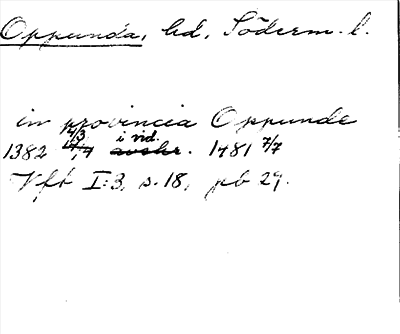 Oppunda, hd, Söderm. l.
in provincia Oppunde
14/3 i vid.
1382 avskr. 1481 7/7
Vft I:3, s. 18, pb 29.